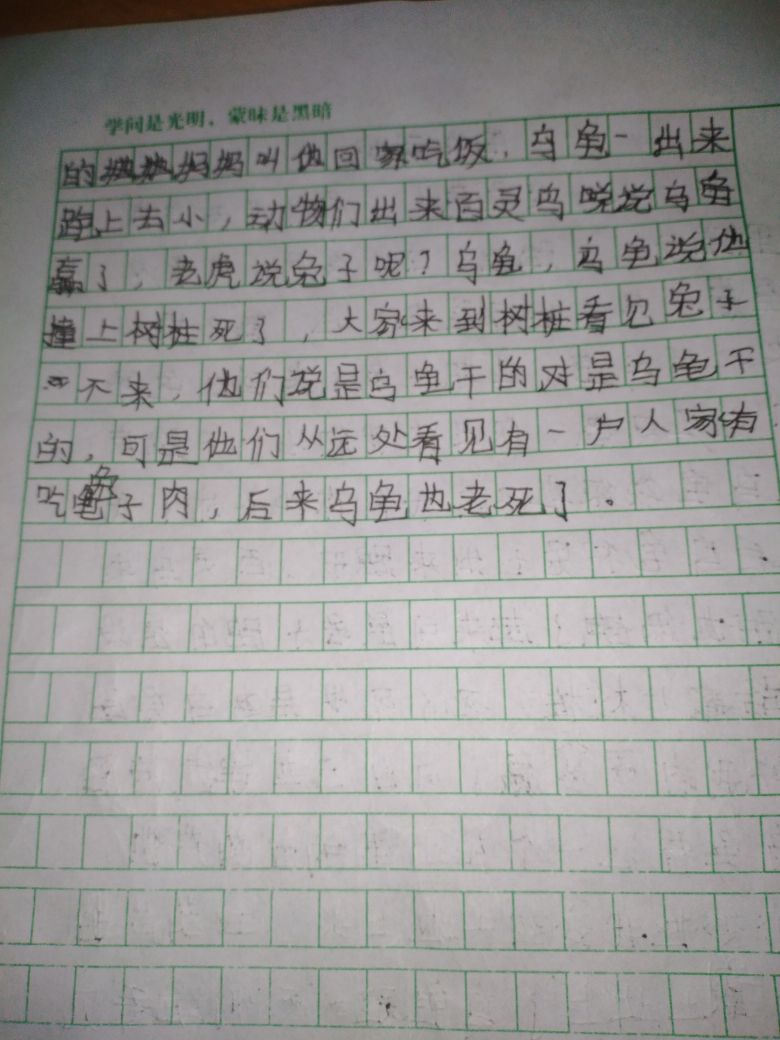 学问是光明，蒙昧是黑暗
的妈妈叫他回家吃饭，乌龟一出来
跑上去小，动物们出来百灵鸟说乌龟
赢了，老虎说兔子呢？乌龟，乌龟说他
撞上树桩死了，大家来到树桩看见兔子
不来，他们说是乌龟干的对是乌龟干
的，可是他们从远处看见有一户人家有
吃兔子肉，后来乌龟也老死了。